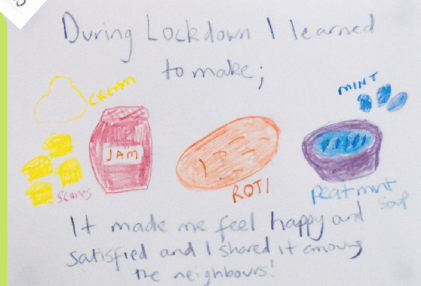 During Lockdown I learned
to make;
MINT
cream
JAM
scones
ROTI
Pea+mint
soup
It made me feel happy and
satisfied and I shared it among
the neighbours!